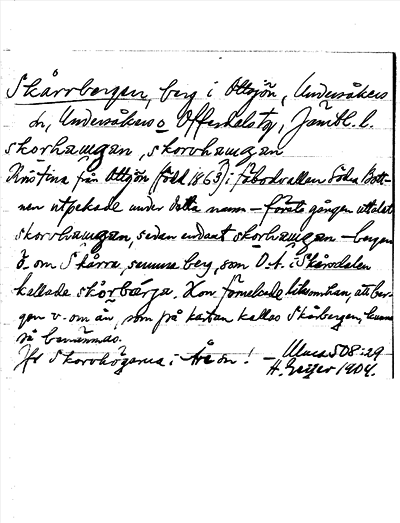 Skårrbergen, berg i Ottsjön, Undersåkers
sn, Undersåkers o Offerdals tg, Jämtl. l.
skorhaugan, skorrhaugan
Kristina från Ottsjön (född 1863) i fäbodvallen Södra Bott-
nen utpekade under detta namn – första gången uttalat
skorrhaugan, sedan endast skorhaugan – bergen
Ö. om Skårra, samma berg, som O.A. i Skårdalen
kallade skårbärja. Hon förnekade liksom han, att ber-
gen v. om ån, som på kartan kallas Skårbergen, kunna
så benämnas.
Jfr Skorvhögarna i Åre sn! – Uluca 508:29
H. Geijer 1904.